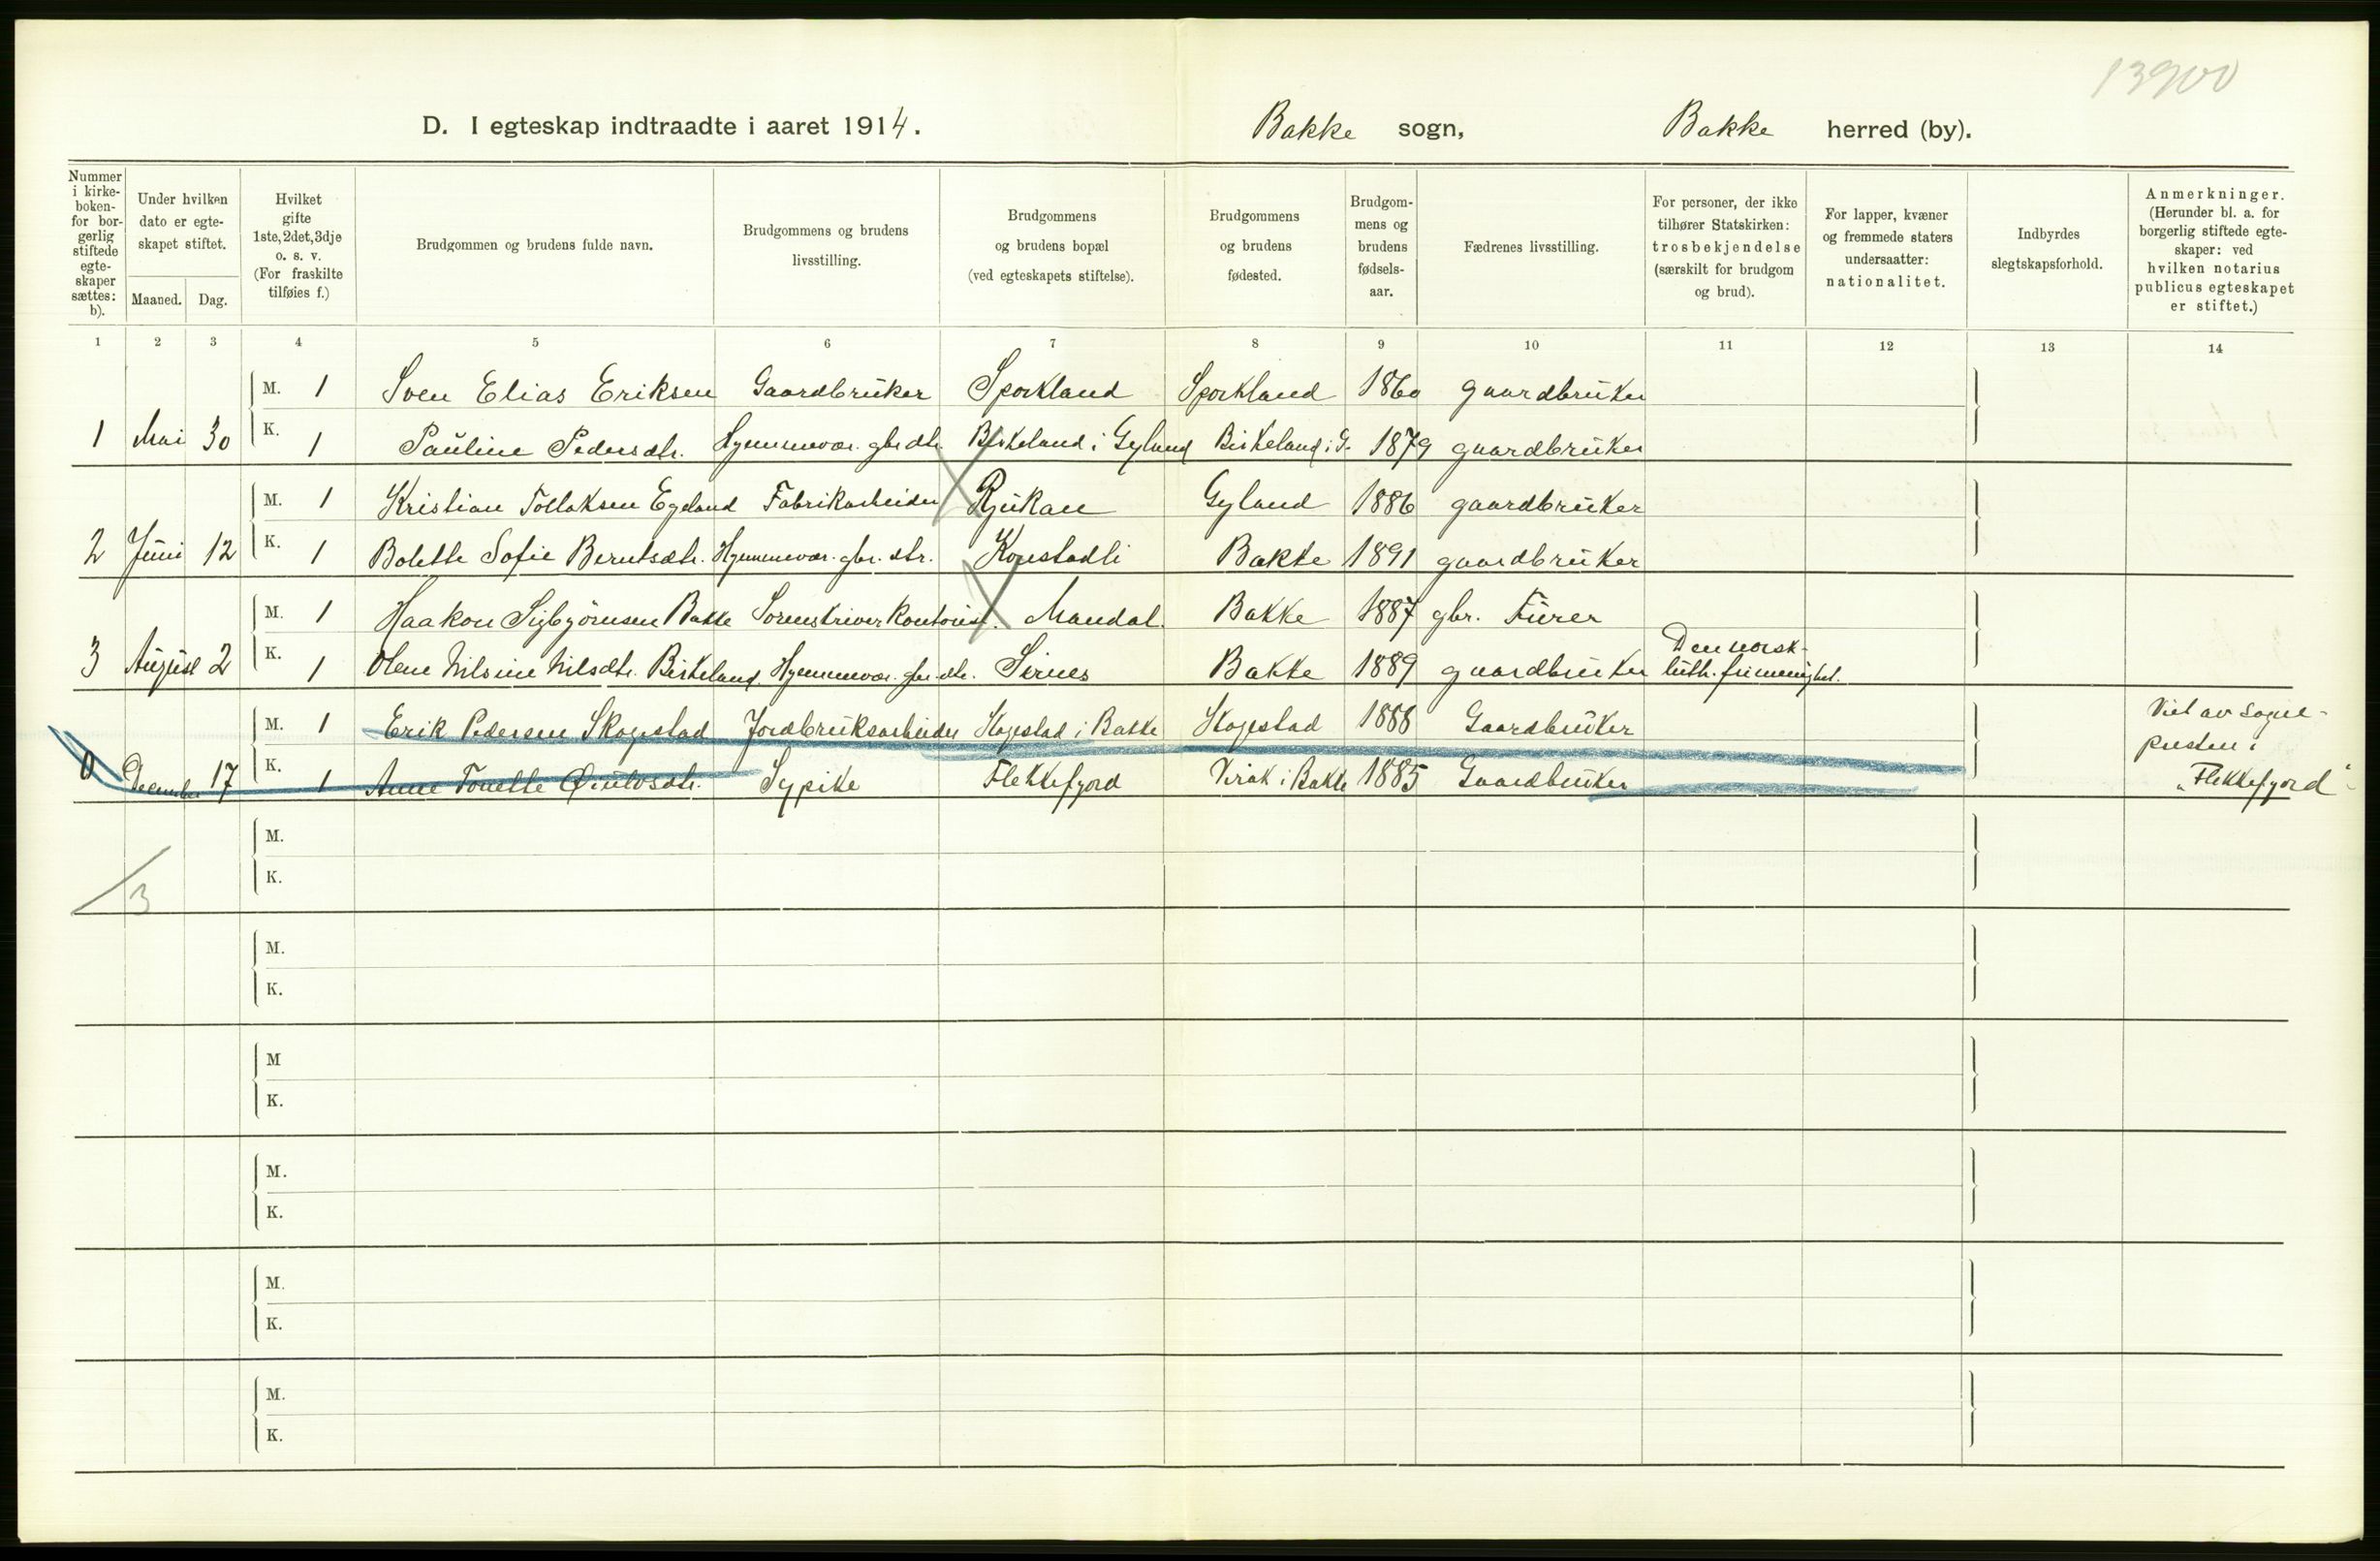 13900
D. I egteskap indtraadte i aaret 1914. Bakke sogn, Bakke herred (by).
Nummer i kirke-boken- for bor-gerlig stiftede egte-skaper sættes: b).
Under hvilken dato er egte-skapet stiftet.
Maaned. Dag.
Hvilket gifte 1ste, 2det, 3dje o. s. v. (For fraskilte tilføies f.)
Brudgommen og brudens fulde navn.
Brudgommens og brudens livsstilling.
Brudgommens og brudens bopæl (ved egteskapets stiftelse).
Brudgommens og brudens fødested.
Brudgom-mens og brudens fødsels-aar.
Fædrenes livsstilling.
For personer, der ikke tilhører Statskirken: trosbekjendelse (særskilt for brudgom og brud).
For lapper, kvæner og fremmede staters undersaatter: nationalitet.
Indbyrdes slegtskapsforhold.
Anmerkninger. (Herunder bl. a. for borgerlig stiftede egte-skaper: ved hvilken notarius publicus egteskapet er stiftet.)
1 2 3 4 5 6 7 8 9 10 11 12 13 14
M. 1 Sven Elias Eriksen Gaardbruker Sporkland Sporkland 1860 gaardbruker
1 Mai 30 K. 1 Pauline Pedersdtr. Hjemmevær. gbr. dtr. Birkeland i Gyland Birkeland i G. 1879 gaardbruker
M. 1 Kristian Tollaksen Egeland Fabrikarbeider Rjukan Gyland 1886 gaardbruker
2 Juni 12 K. 1 Bolette Sofie Berntsdtr. Hjemmevær. gbr. dtr. Bakke 1891 gaardbruker
M. 1 Haakon Sigbjörnsen Bakke Sorenskriverkontorist. Mandal. Bakke 1887 gbr.
3 August 2 K. 1 Olene Nilsine Nilsdtr. Birkeland. Hjemmevær. gbr. dtr. Sirnes Bakke 1889 gaardbruker Den norsk-luth. frimenighet.
M. 1 Erik Pedersen Skogestad Jordbruksarbeider Skogestad i Bakke Skogestad 1888 Gaardbruker Viet av sogne-
presten i
0 December 17 K. 1 Anne Tonette Sypike Flekkefjord Virak i Bakke 1885 Gaardbruker "Flekkefjord"
M.
K.
3
M.
K.
M
K.
M.
K.
M.
K.
M.
K.